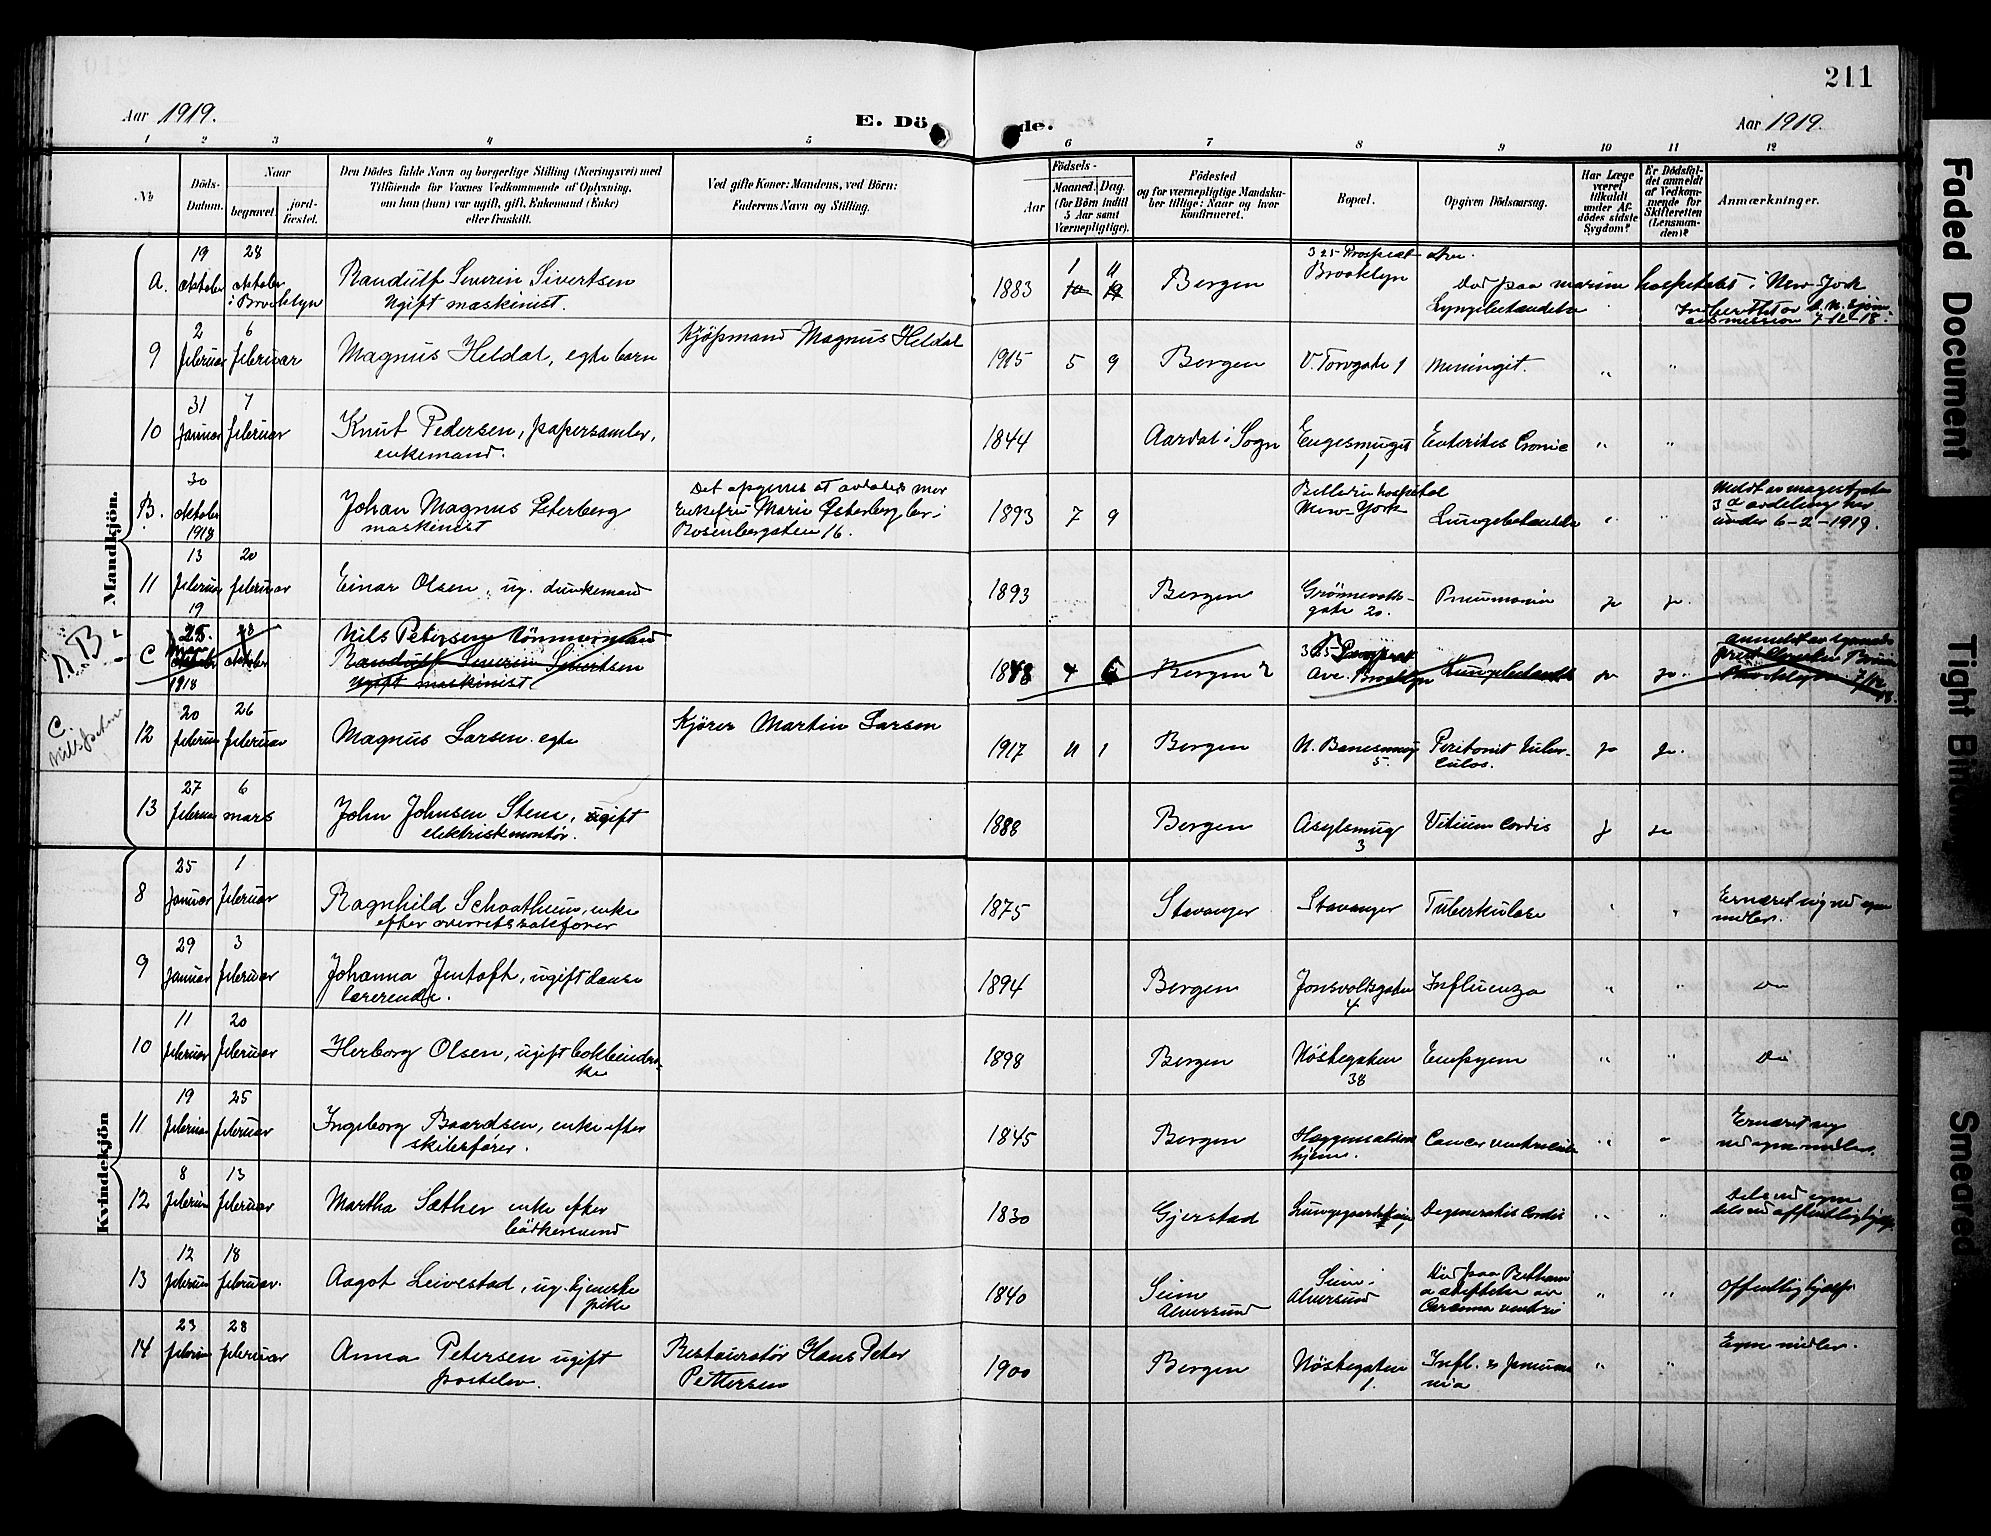 211
Aar 1919.
E. Dö de.
Aar 1919.
1 2 3 4 5 6 7 8 9 10 11 12
No
Döds-
Datum.
Naar
begravet.
jord-
fæstet.
Den Dödes fulde Navn og borgerlige Stilling (Næringsvei) med
Tilföiende for Voxnes Vedkommende af Oplysning,
om han (hun) var ugift, gift, Enkemand (Enke)
eller fraskilt.
Ved gifte Koner: Mandens, ved Börn:
Faderens Navn og Stilling.
Födsels-
Aar
Maaned.
Dag.
(for Börn indtil
5 Aar samt
Værnepligtige).
Födested
og for værnepligtige Mandsku-
ber tillige: Naar og hvor
konfirmeret.
Bopæl.
Opgiven Dödsaarsag.
Har Læge
været
tilkaldt
under Af-
dödes sidste
Sygdom?
Er Dödsfal-
det anmeldt
af Vedkom-
mende for
Skifteretten
(Lensman-
den)?
Anmærkninger.
Mandkjön.
A. 19 oktober 28 oktober i Brooklyn
Randulf Severin Sivertsen
Ugift maskinist.
1883 1 11 Bergen
325 Prospect Ave.
Brooklyn
Død paa marine hospitalet i New-York
Lungebetændelse
7-12-18.
9 2 februar 6 februar
Magnus Heldal, egte barn
Kjøpmand Magnus Heldal
1915 5 9 Bergen V. Torvgate 1 Meningit. " "
10 31 Januar 7 februar
Knut Pedersen, papersamler,
enkemand.
1844 Aardal i Sogn Engesmuget 1 Enterites Cronic " "
B. 30 oktober 1918
Johan Magnus Österberg
maskinist
Det opgives at avdødes mor
Enkefru Marie Österberg bor i
Rosenbergaten 16.
1893 7 9
New-York
Lungebetændelse
Meldt av magistratens
3die avdeling her
under 6-2-1919.
11 13 februar 20 februar
Einar Olsen, ug. dunkemand
1893 Bergen
gate 20. Pneumonia ja ja.
A. B.
C 19 1918 oktober
Nils Petersen
Randulf Severin Sivertsen
Ugift maskinist
4 6 Bergen ?
325 Prospect
Ave. Brooklyn Lungebetændelse ja ja.
C.
Nils Petersen
12 20 februar 26 februar
Magnus Larsen egte
Kjører Martin Larsen
1917 11 1 Bergen N. Banesmug 5. Peritonit Tuber-
culos. ja ja.
13 27 februar 6 mars
John Johnsen Stene, ugift
elektriskmontör.
1888 Bergen Asylsmug 3 Vitium Cordis ja ja
Kvindekjön
8 25 Januar 1 februar
Ragnhild Schaatheim, enke
efter overretssakfører
1875 Stavanger Stavanger Tuberkulose " "
Ernæret sig ved egne
midler.
9 29 Januar 3 februar
Johanna Jentoft, ugift danse
lærerinde.
1894 Bergen Jonsvoldsgaten 4 Influenza " " Do
10 11 februar 20 februar
Herborg Olsen, ugift bokbinders-
ke
1898 Bergen Nöstegaten 38 Empyem " " Do
11 19 februar 25 februar
Ingeborg Baardsen, enke efter
skibsfører.
1845 Bergen
hjem. Cancer ventriculi " "
Ernæret sig
ved egne midler.
12 8 februar 13 februar
Martha Sæther enke efter
bödkersvend
1830 Gjerstad Lungegaardskaien Degeneratio Cordis " "
Dels ved egne
dels ved offentlig hjælp.
13 12 februar 18 februar.
Aagot Leivestad, ug. tjeneste
pike
1840 Seim
Alversund
Seim i
Alversund
Död paa Bethani
a stiftelse av
Carcinoma ventri
" " offentlig hjælp.
14 23 februar 28 februar
Anna Petersen ugift
postelev.
Restauratör Hans Peter
Pettersen
1900 Bergen Nöstegaten 1. Infl. & Pneumo
nia " " Egne midler.
Faded Document
Tight Binding
Smeared